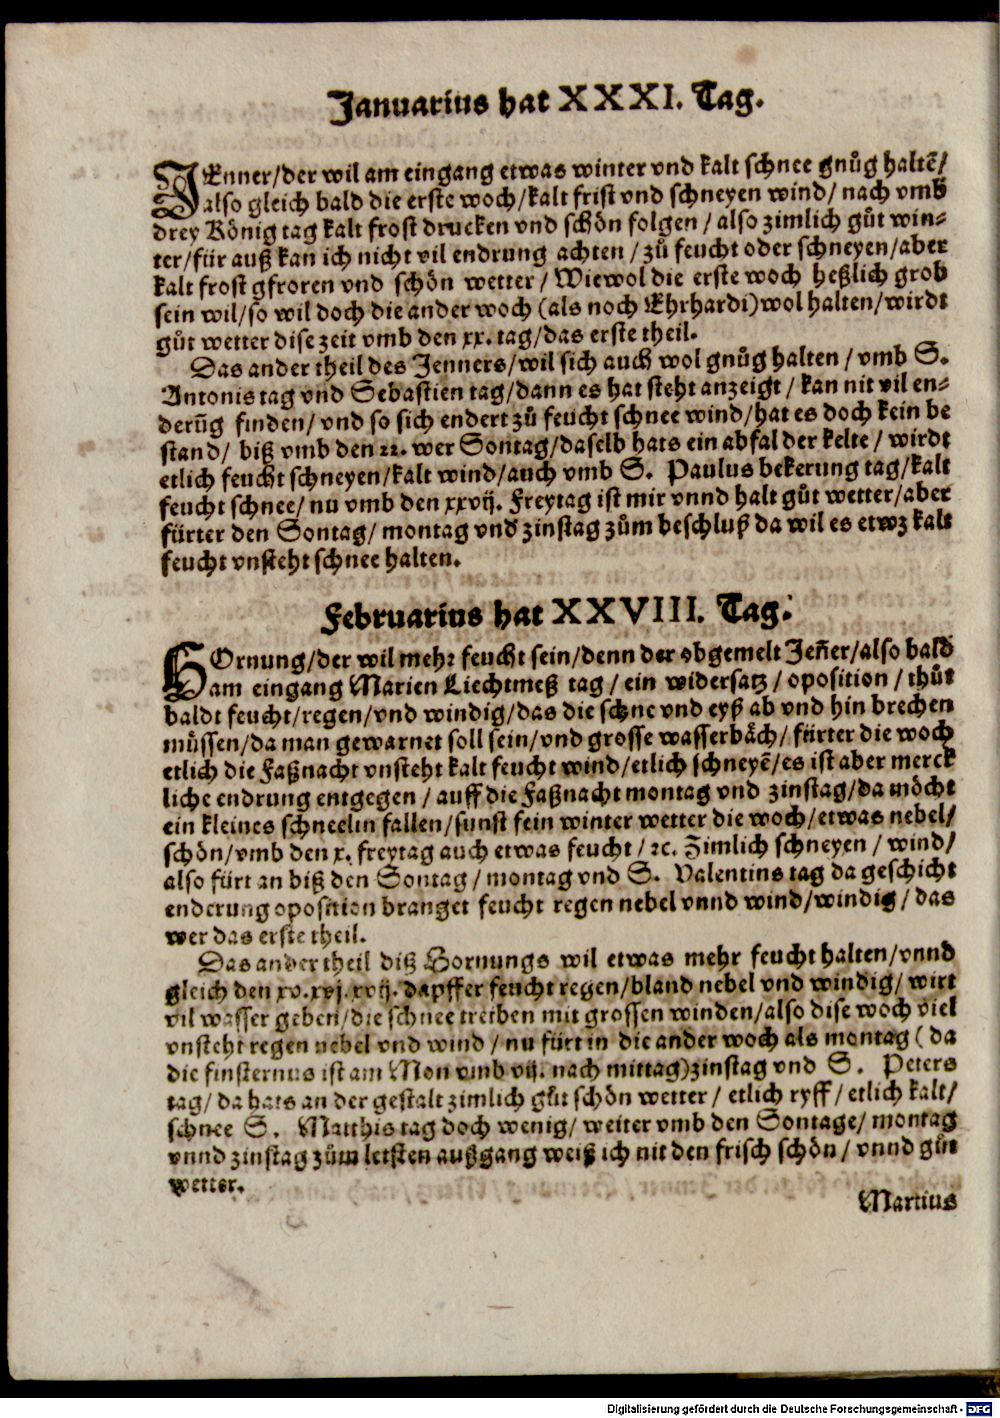 Januarius hat XXXI. Tag.
JEnner/der wil am eingang etwas winter vnd kalt schnee gnůg haltē/
also gleich bald die erste woch/kalt frist vnd schneyen wind/ nach vmb
drey König tag kalt frost drucken vnd schön folgen / also zimlich gůt win-
ter/für auß kan ich nicht vil endrung achten / zů feucht oder schneyen/aber
kalt frost gfroren vnd schön wetter / Wiewol die erste woch heßlich grob
sein wil/so wil doch die ander woch (als noch Ehrhardi) wol halten/wirdt
gůt wetter dise zeit vmb den xx. tag/das erste theil.
Das ander theil des Jenners/wil sich auch wol gnůg halten / vmb S.
Antonis tag vnd Sebastien tag/dann es hat steht anzeigt / kan nit vil en-
derūg finden/ vnd so sich endert zů feucht schnee wind/hat es doch kein be
stand/ biß vmb den 22. wer Sontag/daselb hats ein abfal der kelte / wirdt
etlich feucht schneyen/kalt wind/auch vmb S. Paulus bekerung tag/kalt
feucht schnee/ nu vmb den xxvij. Freytag ist mir vnnd halt gůt wetter/aber
fürter den Sontag/ montag vnd zinstag zům beschluß da wil es etwz kalt
feucht vnsteht schnee halten.
Februarius hat XXVIII. Tag.
HOrnung/der wil mehr feucht sein/denn der obgemelt Jeñer/also bald
am eingang Marien Liechtmeß tag / ein widersatz / oposition / thůt
baldt feucht/regen/vnd windig/das die schne vnd eyß ab vnd hin brechen
müssen/da man gewarnet soll sein/vnd grosse wasserbäch/ fürter die woch
etlich die Faßnacht vnsteht kalt feucht wind/etlich schneyē/es ist aber merck
liche endrung entgegen / auff die Faßnacht montag vnd zinstag/da möcht
ein kleines schneelin fallen/sunst fein winter wetter die woch/etwas nebel/
schön/vmb den x. freytag auch etwas feucht / ꝛc. Zimlich schneyen / wind/
also fürt an biß den Sontag / montag vnd S. Valentins tag da geschicht
enderung oposition branget feucht regen nebel vnnd wind/windig / das
wer das erste theil.
Das ander theil diß Hornungs wil etwas mehr feucht halten/vnnd
gleich den xv.xvj.xvij. dapffer feucht regen/bland nebel vnd windig/ wirt
vil wasser geben/die schnee treiben mit grossen winden/also dise woch viel
vnsteht regen nebel vnd wind / nu fürt in die ander woch als montag ( da
die finsternus ist am Mon vmb vij. nach mittag)zinstag vnd S. Peters
tag/ da hats an der gestalt zimlich gůt schön wetter / etlich ryff / etlich kalt/
schnee S. Matthis tag doch wenig/ weiter vmb den Sontage/ montag
vnnd zinstag zům letsten außgang weiß ich nit den frisch schön / vnnd gůt
wetter.
Martius
Digitalisierung gefördert durch die Deutsche Forschungsgemeinschaft - DFG